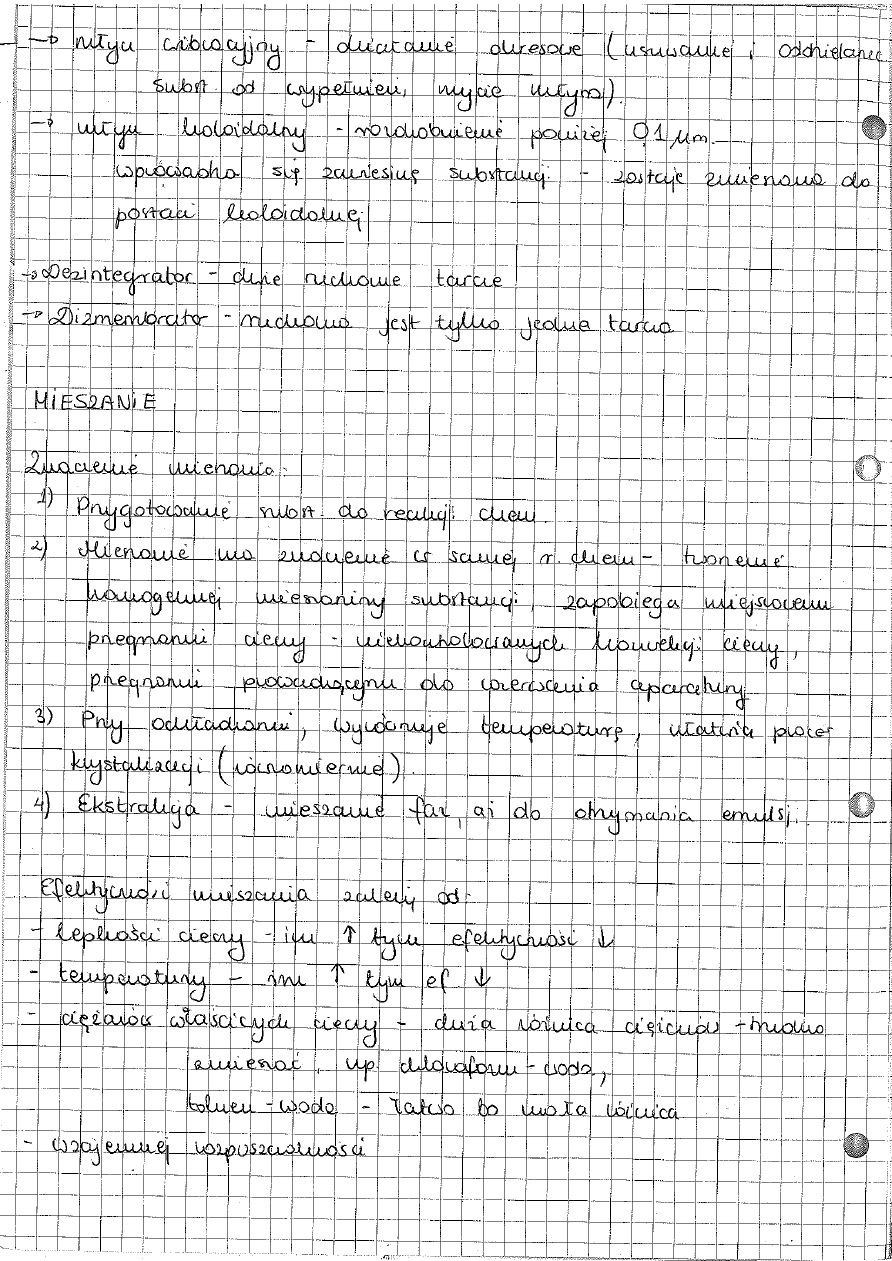 → młyn wibracyjny - działanie okresowe (usuwanie i oddzielanie
subst od wypełnień, mycie młyna).
→ młyn koloidalny - rozdrobnienie poniżej 0,1 μm.
wprowadza się zawiesinę substancji - zostaje zmieniona do
postaci koloidalnej
→ Dezintegrator - dwie ruchome tarcze
→ Dizmembrator - ruchoma jest tylko jedna tarcza
MIESZANIE
Znaczenie mieszania:
1) Przygotowanie subst do reakcji chem.
2) Mieszanie ma znaczenie w samej r. chem - tworzenie
homogennej mieszaniny substancji, zapobiega miejscowemu
przegrzaniu cieczy - niekontrolowanych konwekcji cieczy,
przegrzaniu prowadzącemu do wzerwienia aparatury
3) Przy odkładaniu, wyrównuje temperaturę, ułatwia proces
krystalizacji (równomierne).
4) Ekstrakcja - mieszanie faz, aż do otrzymania emulsji.
Efektywność mieszania zależy od:
- lepkości cieczy - im ↑ tym efektywność ↓
- temperatury - im ↑ tym ef ↓
- ciężarów właściwych cieczy - duża różnica ciężarów - trudno
zmieszać, np. chloroform - woda,
toluen - woda - łatwo bo mała różnica
- wzajemnej rozpuszczalności